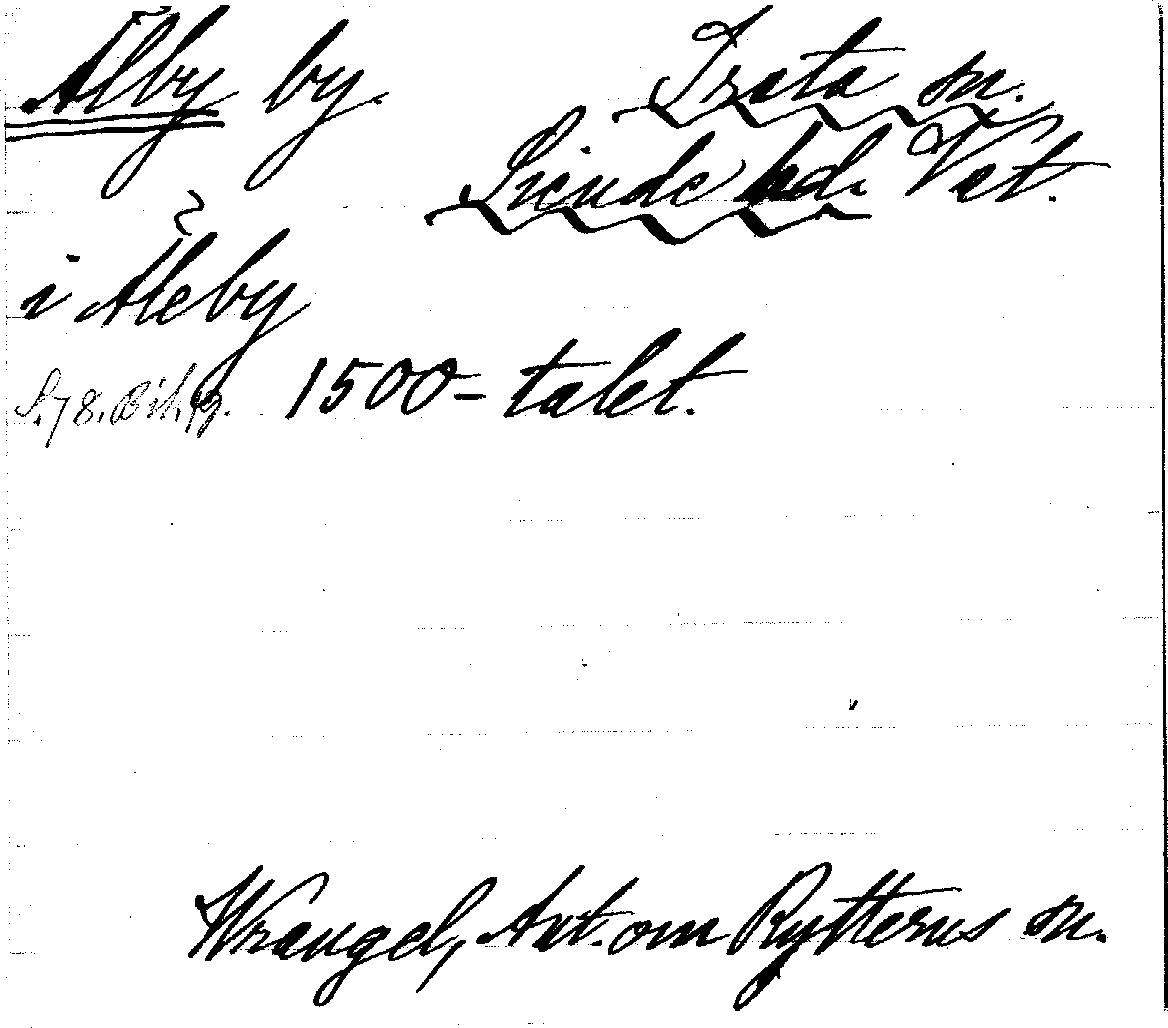 Ålby by. Irsta sn.
Siende hd. Vst.
i Åleby
S. 78. Bih. 1500-talet.
Wrangel, Ant. om Rytterns sn.